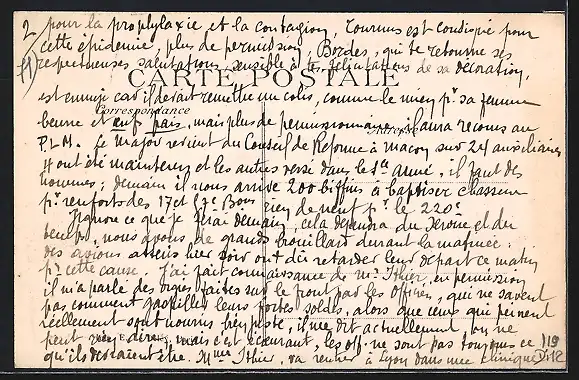 2 pour la prophylaxie et la contagion, Tournus est consigné pour
cette épidémie, plus de permission, Bordes, qui te retourne ses
respectueuses salutations, sensible à tes félicitations de sa décoration,
CARTE POSTALE
est ennuyé car il devait remettre un colis, comme le mien pr. sa femme
Correspondance
Adresse
beurre et œufs pais, mais plus de permissionnaire il aura recours au
P.L.M. Le Major revient du Conseil de Réforme à Macon sur 24 auxiliaires
4 ont été maintenus et les autres versé dans le Sce Armé, il faut des
hommes; demain il nous arrive 200 biffins à baptiser chasseur
pr. renforts des 17e et
rien de neuf pr. le 220e
J'ignore ce que je ferai demain, cela dépendra du service et du
temps, nous avons de grands brouillard durant la matinée:
des avions atterris hier soir ont dû retarder leur départ ce matin
pr. cette cause. J'ai fait connaissance de Mr Ithier, en permission
il m'a parlé des orgies faites sur le front par les officiers, qui ne savent
pas comment gaspiller leurs fortes soldes, alors que ceux qui peinent
réellement sont nourris bien juste, il me dit actuellement, on ne
peut rien dire, mais c'est écœurant, les off. ne sont pas toujours ce
qu'ils devraient être. Mme Ithier, va rentrer à Lyon dans une clinique